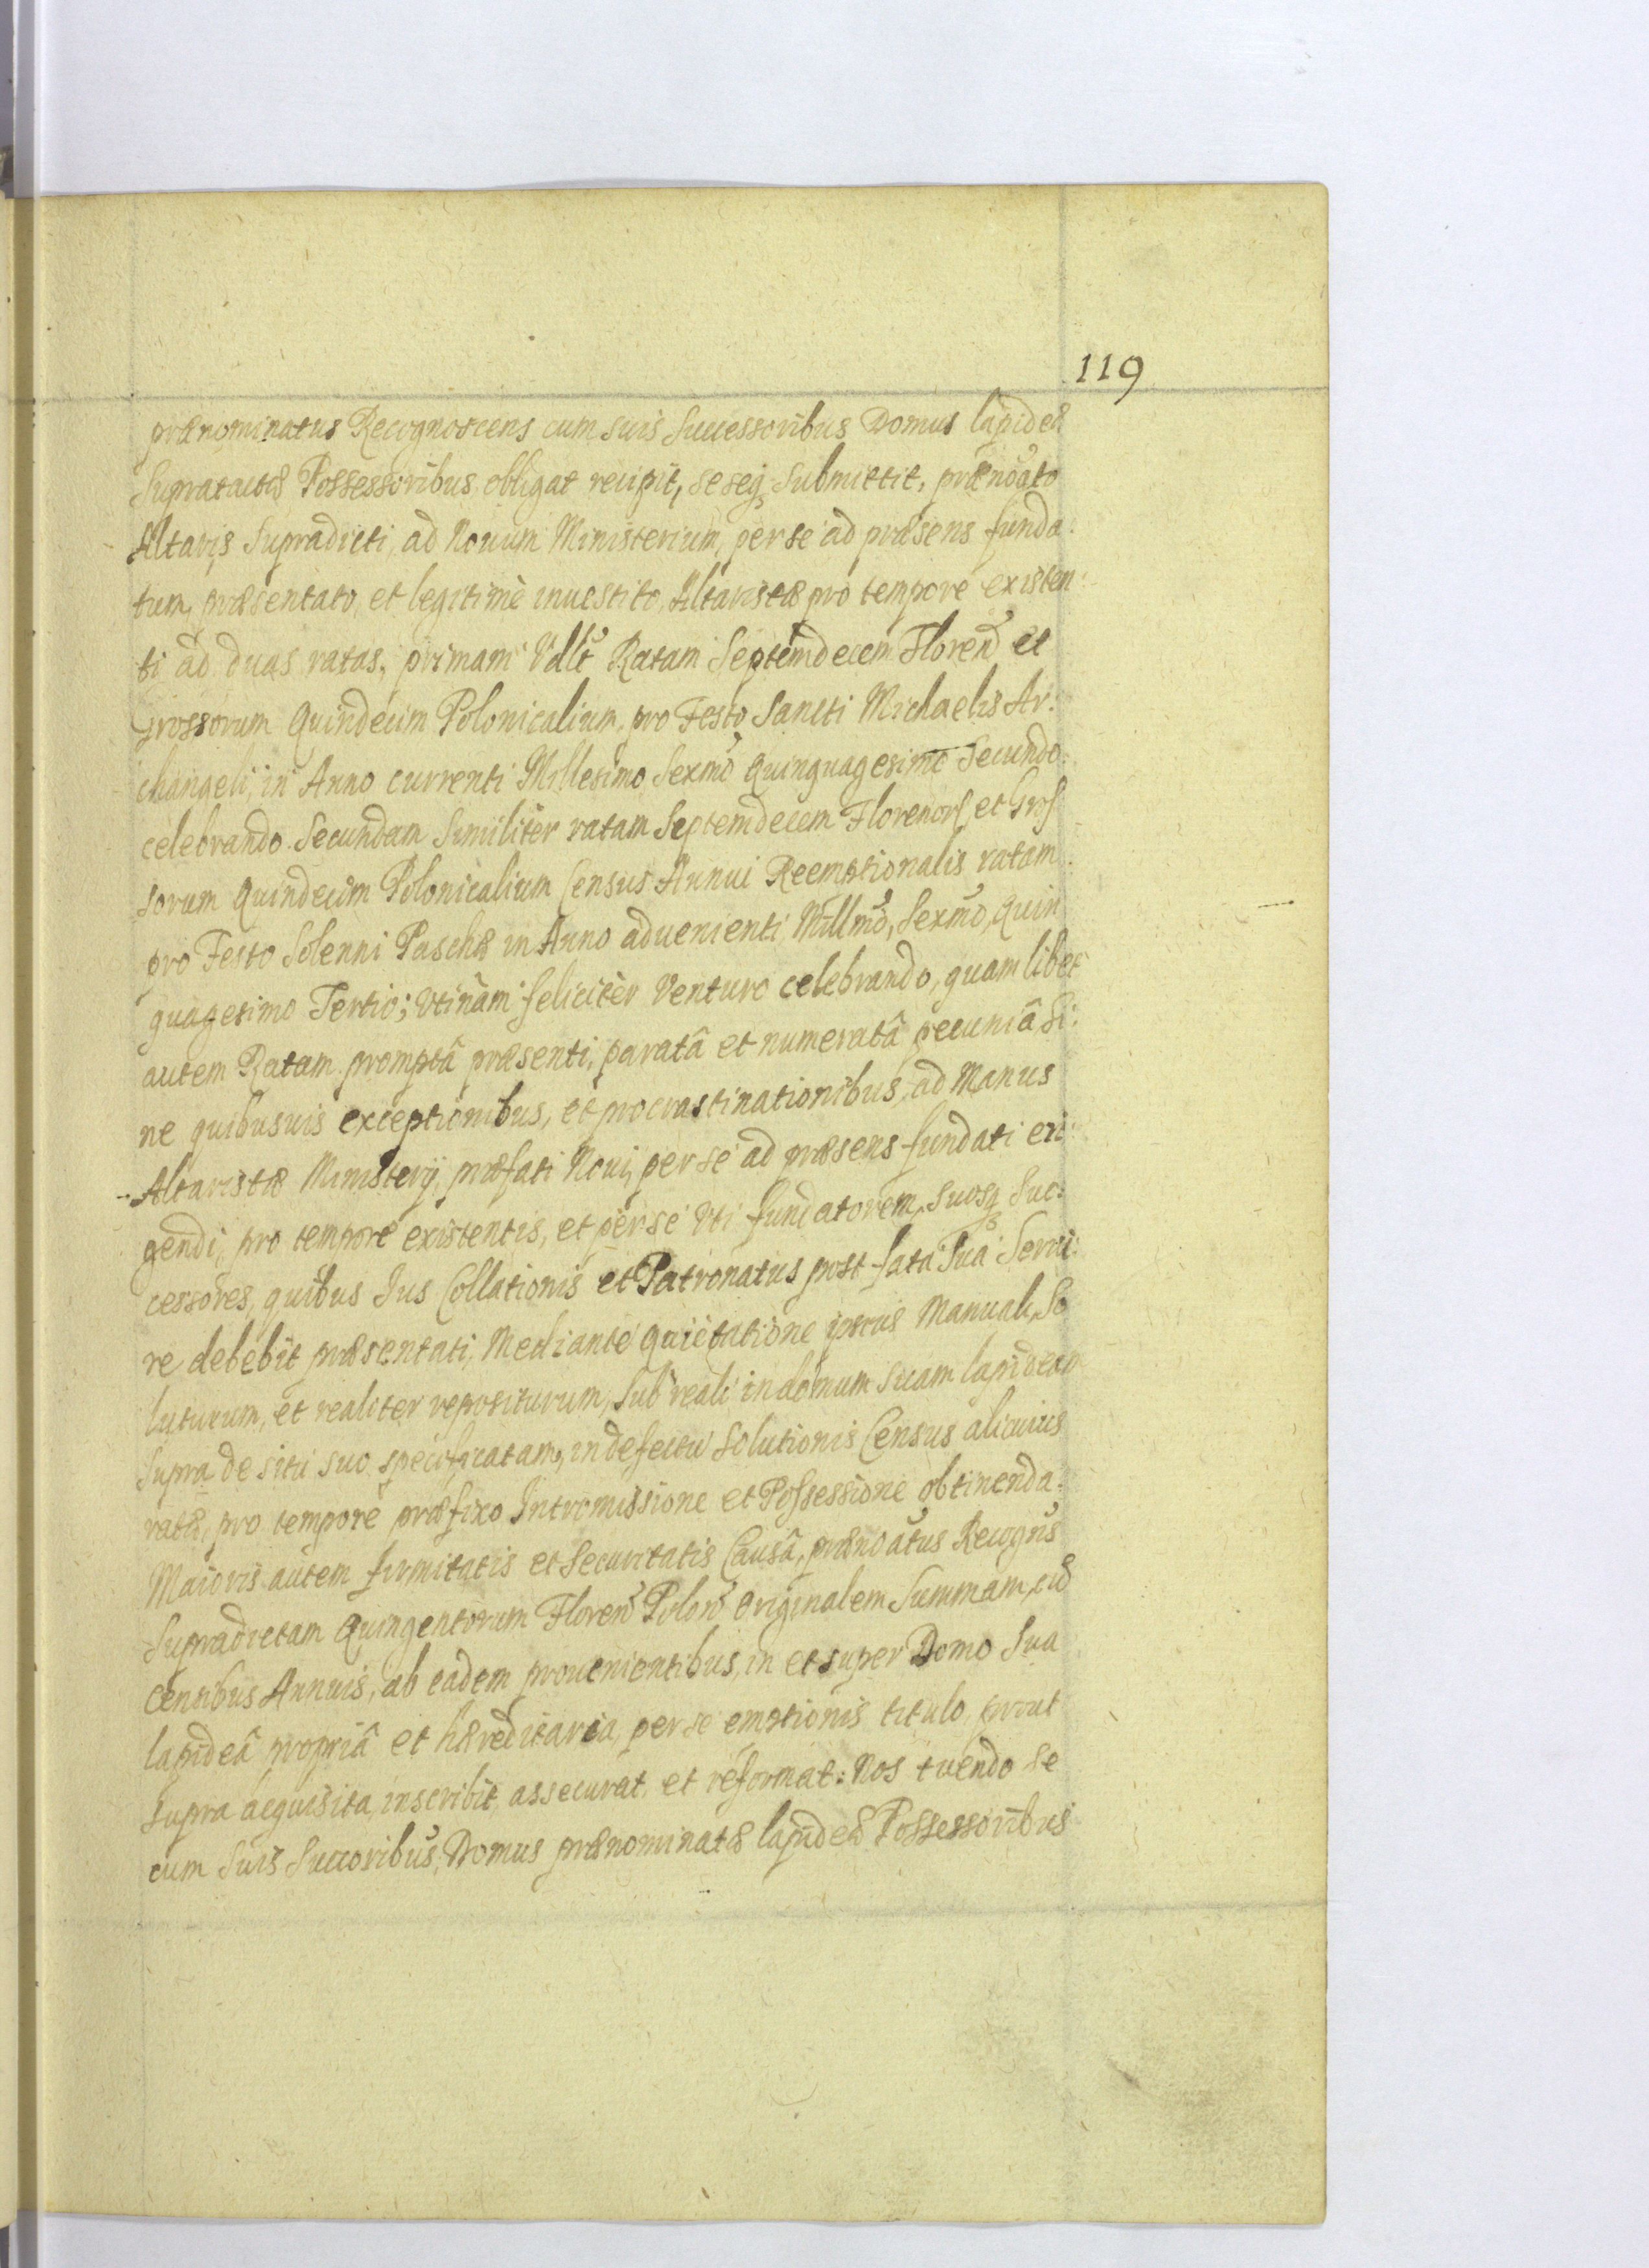 119
prænominatus Recognoscens cum suis Successoribus Domus lapideæ
Supratactæ Possessoribus obligat recipit, seseq; submittit, prænoĩato
Altaris Supradicti, ad Nouum Ministerium, per se ad præsens funda:
tum, præsentato, et legitimè inuestito, Altaristæ pro tempore existen:
ti ad duas ratas, primam Vdlt Ratam Septemdecem Floren et
Grossorum Quindecim Polonicalium, pro Festo Sancti Michaelis Ar:
changeli, in Anno currenti Millesimo Sexmo Quinquagesimo Secundo
celebrando. Secundam Similiter ratam Septemdecem Florenors et Gros
sorum Quindecim Polonicalium Census Annui Reemptionalis ratam
pro Festo Solenni Paschæ in Anno aduenienti Millmo, Sexmo, Quin
quagesimo Tertio; vtinam feliciter Venturo celebrando, quam libet
autem Ratam promptâ præsenti, paratâ et numeratâ pecuniâ Si:
ne quibusuis exceptionibus, et procrastinationibus, ad Manus
Altaristæ Ministerij, præfati Noui, per se ad præsens fundati eri:
gendi, pro tempore existentis, et per se Vti fundatorem, Suosq; Suc:
cessores, quibus Jus Collationis et Patronatus post fata Sua Serui:
re debebit præsentati, Mediante Quietatione ipsius Manuali, So
luturum, et realiter repositurum, Sub reali in domum Suam lapideam
Supra de situ suo specificatam, in defectu Solutionis Census alicuius
ratæ, pro tempore præfixo Intromissione et Possessione obtinenda:
Maioris autem firmitatis et Securitatis Causâ, prænoatus Recogns
Supradictam Quingentorum Floren Polon Originalem Summam, cũ
Censibus Annuis, ab eadem prouenientibus, in et super Domo Sua
lapideâ propriâ et hæreditaria, per se emptionis titulo, prout
Supra acquisita, inscribit, assecurat, et reformat: Nos tuendo se
cum Suis Succoribus, Domus prænominatæ lapideæ Possessoribus